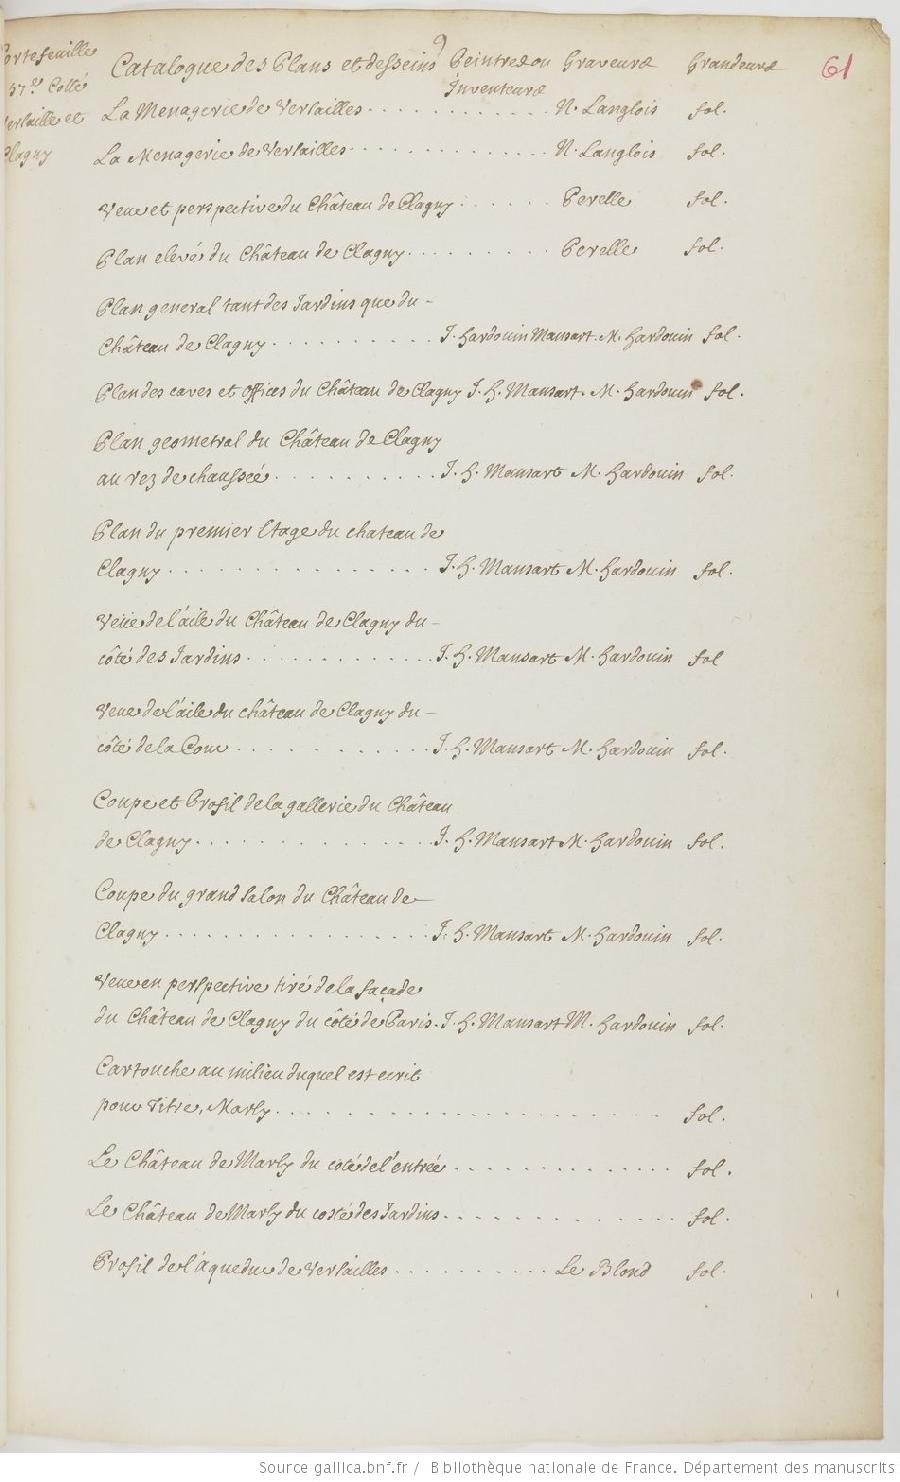 9
Portefeuille
37.e Cotté
Versaille et
Clagny
Catalogue des Plans et desseins Peintres ou Graveurs Grandeurs 61
Inventeurs
La Menagerie de Versailles . . . . . . . . . . N. Langlois fol.
La Menagerie de Versailles . . . . . . . . . . N. Langlois fol.
Veue et perspective du Château de Clagny . . . . . . Perelle fol.
Plan elevé du Château de Clagny . . . . . . . . Perelle fol.
Plan general tant des Jardins que du –
Château de Clagny . . . . . . . . . . J. Hardouin Mansart. M. Hardouin fol.
Plan des caves et offices du Château de Clagny J. H. Mansart. M. Hardouin fol.
Plan geometral du Château de Clagny
au rez de chaussée . . . . . . . . . . J. H. Mansart M. Hardouin fol.
Plan du premier Etage du chateau de
Clagny . . . . . . . . . . . . . . . J. H. Mansart M. Hardouin fol.
Veüe de l'aile du Château de Clagny du –
côté des Jardins . . . . . . . . . . . . J. H. Mansart M. Hardouin fol
Veue de l'aile du château de Clagny du –
côté de la Cour . . . . . . . . . . . . J. H. Mansart M. Hardouin fol.
Coupe et Profil de la gallerie du Château
de Clagny . . . . . . . . . . . . . . J. H. Mansart M. Hardouin fol.
Coupe du grand Salon du Château de –
Clagny . . . . . . . . . . . . . . . . J. H. Mansart M. Hardouin fol.
Veue en perspective tiré de la façade
du Château de Clagny du côté de Paris. J. H. Mansart M. Hardouin fol.
Cartouche au milieu duquel est ecrit
pour Titre, Marly . . . . . . . . . . . . . . . . . . fol.
Le Château de Marly du coté de l'entrée . . . . . . . . . . . fol.
Le Château de Marly du costé des Jardins . . . . . . . . . . . . fol.
Profil de l'aqueduc de Versailles . . . . . . . . . . Le Blond fol.
Source gallica.bnf.fr / Bibliothèque nationale de France. Département des manuscrits